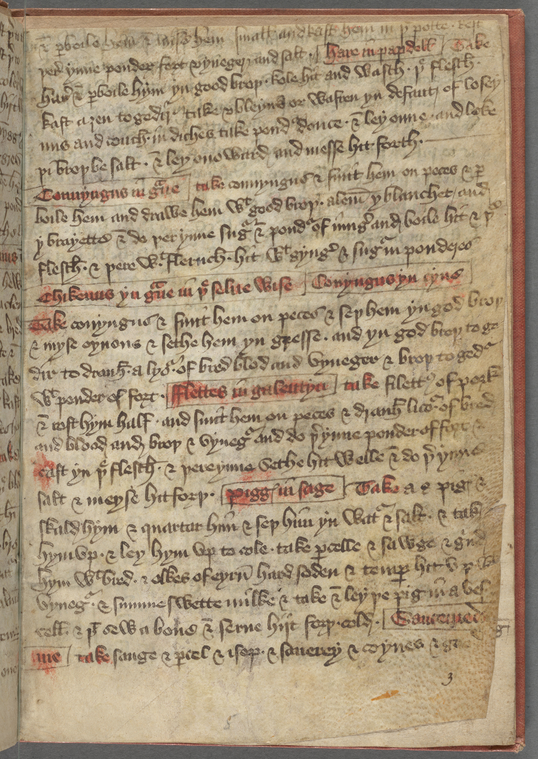 & pboile hem & myse hem smalle and kast hem in þe potte kest
þer ynne pouder fort vyneger and salt. Hare in papdell Take
Hares & pboile hym yn good broþ. kole hit and wasch þe flesch.
kast a ȝen to gedyr. take obleyns or wafren yn defautʒ of losey
nns and couch in disches take poud douce. & ley onne and loke
þi broþ be salt. & ley onoward and messe hit forth.
Conyngus in gue take conyngus & smit hem on peces & p
boile hem and drawe hem wt good broþ. alemn y blanchet and
y brayette & do þer ynne sugr & poudr of gingr and boile hit & þe
flesch. & þere wt flerisch hit wt gyngr & sugr in pouderes
Chikenus yn gue in þe selue wise Conyngus yn cyue
Take conyngus & smit hem on peces & seþ hem yn god broþ
& myse oynons & sethe hem yn gresse. and yn god broþ to ge
dir to drauh a lyor of bred blod and vyneger & broþ to gedr
wt pouder of fort. Filettes in galentyn take filetts of pork
& rost hym half. and smit hem on peces & drauh licor of bred
and blood and broþ & vynegr and do þer ynne pouder of fort &
cast yn þe flesch. & þere ynne sethe hit welle & do þer ynne
salt & meyse hit forþ. Pigge in sage Take a pigr &
skald hym & quartar him & seþ him yn watr & salt. & tak
hym vp. & ley hym vp to cole. take pcelle & sawge & grid
hym wt bred. & olkes of eyrun hard soden & temp hit vp wt
vynegr. & summe swette milke & take & ley þe pig in a ves
cell. & þe sew a boue & serue hijt forþ cold. Sauce ma
me take sauge & pcel & isop. & sauerey & coynes &
3
5